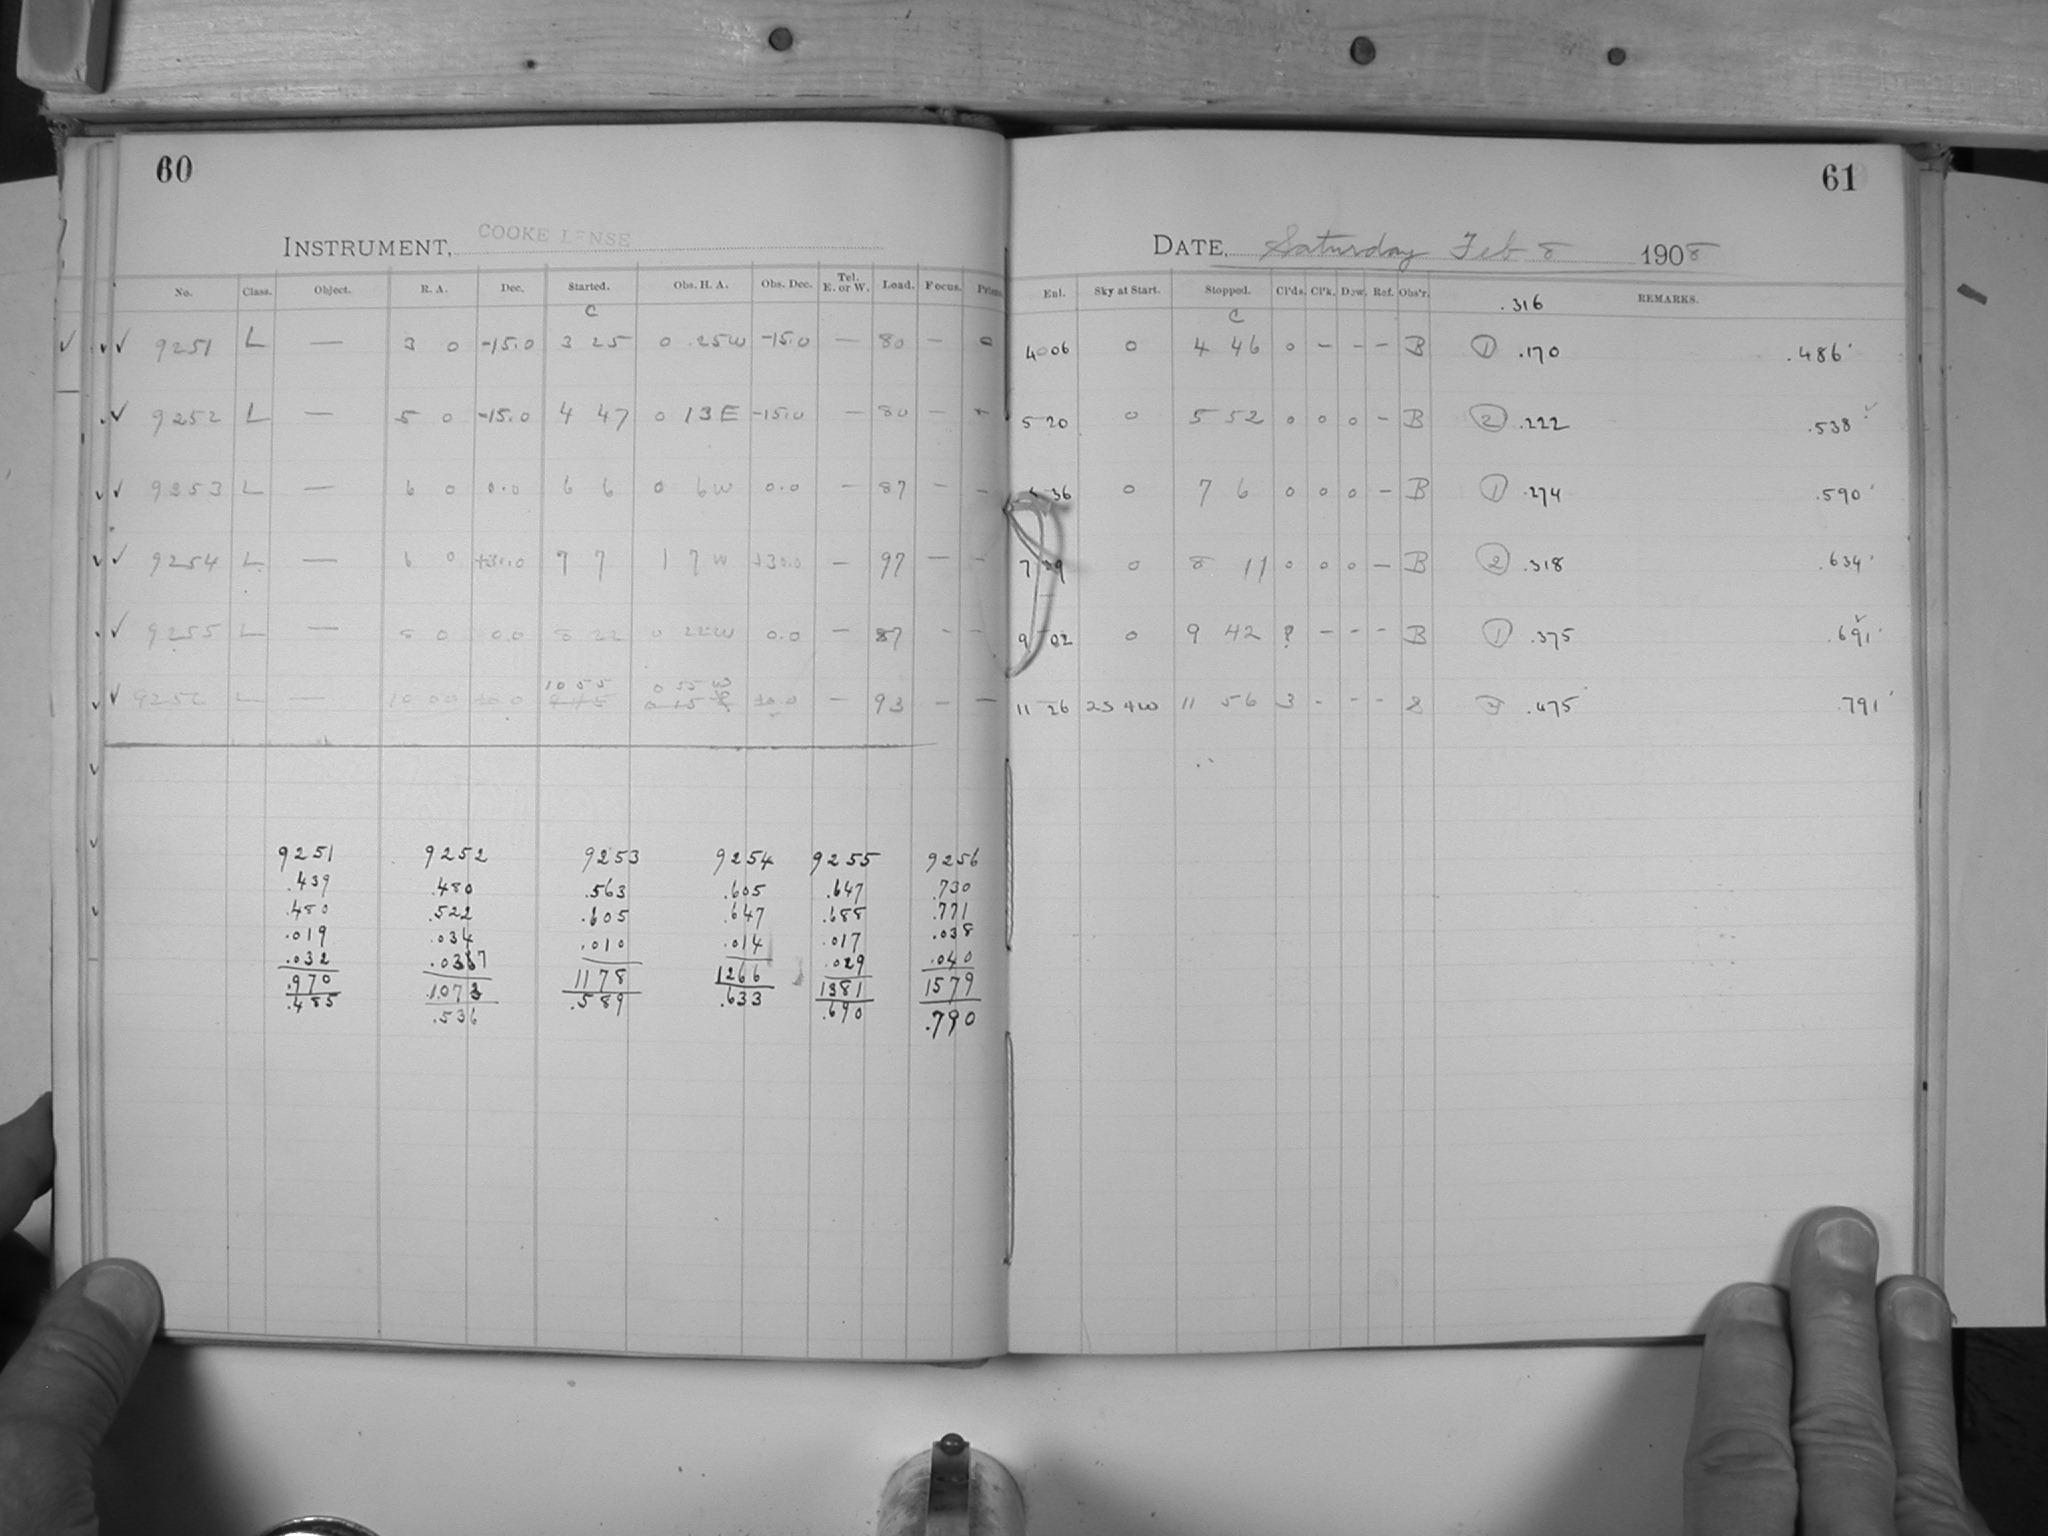 60
INSTRUMENT, COOKE LENSE
No. Class. Object. R. A. Dec. Started. Obs. H. A. Obs. Dec. Tel. E. or W. Load. Focus.
C
✓ ✓ ✓ 9251 L — 3 0 -15.0 3 25 0 25W -15.0 — 80 — 0
✓ 9252 L — 5 0 -15.0 4 47 0 13E -15.0 — 80 —
✓ ✓ 9253 L — 6 0 0.0 6 6 0 6W 0.0 — 87 — —
✓ ✓ 9254 L — 6 0 +30.0 7 7 1 7W +30.0 — 97 — —
✓ 9255 L — 8 0 0.0 8 22 0 22W 0.0 — 87 — —
10 55 0 55 W
✓ ✓ 9256 L — 10 00 — 93 — —
9251 9252 9253 9254 9255 9256
.439 .480 .563 .605 .647 .730
.480 .522 .605 .647 .688 .771
.019 .034 .010 .014 .017 .038
.032 .0337 .029 .040
.970 1.073 1178 1266 1381 1579
.485 .536 .589 .633 .690 .790
61
DATE, Saturday Feb 8 1908
Enl. Sky at Start. Stopped. Cl'ds. Cl'k. Dew. Ref. Obs'r. REMARKS.
C .316
4 06 0 4 46 0 — — — B ① .170 .486
5 20 0 5 52 0 0 0 — B ② .222 .538
36 0 7 6 0 0 0 — B ① .274 .590
7 0 8 11 0 0 0 — B ② .318 .634
9 02 0 9 42 ? — — — B ① .375 .691
11 26 2S 4W 11 56 3 — — — .475 .791